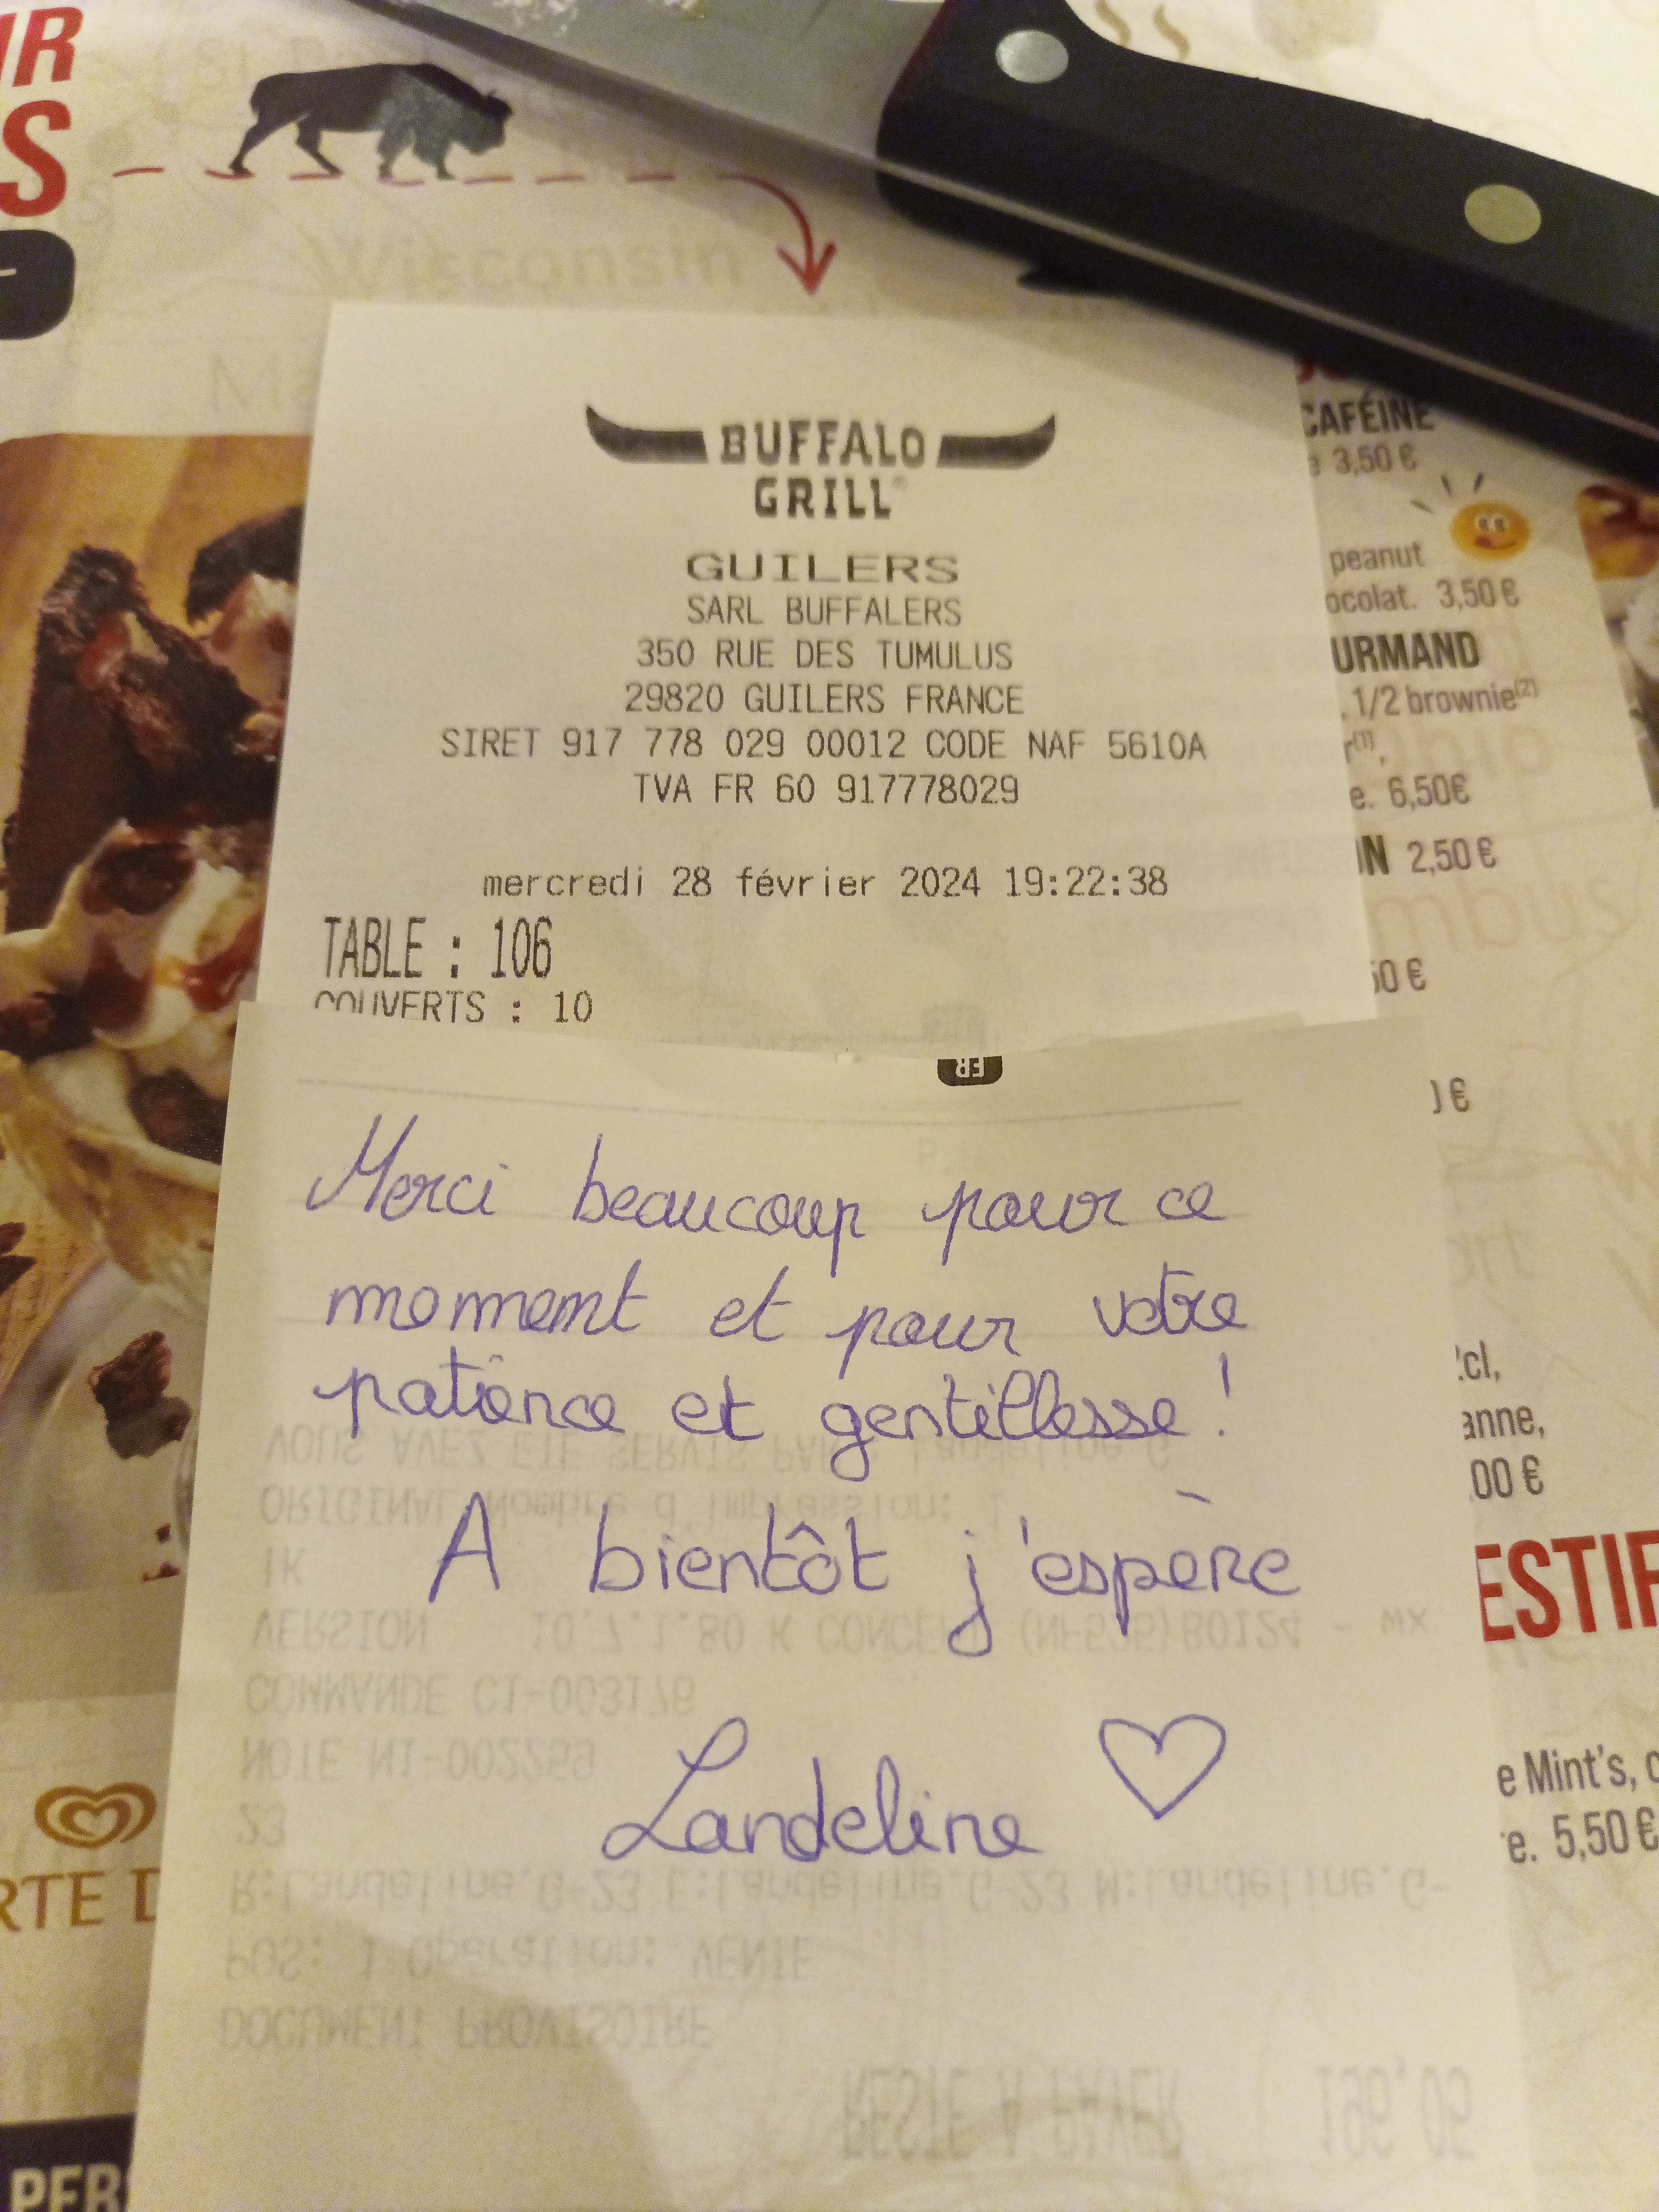 UR
S
Wisconsin
BUFFALO
GRILL®
GUILERS
SARL BUFFALERS
350 RUE DES TUMULUS
29820 GUILERS FRANCE
SIRET 917 778 029 00012 CODE NAF 5610A
TVA FR 60 917778029
mercredi 28 février 2024 19:22:38
TABLE : 106
COUVERTS : 10
FR
Merci beaucoup pour ce
moment et pour votre
patience et gentillesse !
A bientôt j'espère
Landeline
VOUS AVEZ ETE SERVIS PAR : Landeline G
ORIGINAL Nombre d'impression: 1
COMMANDE C1-003176
NOTE N1-002259
23
R:Landeline.G-23 E:Landeline.G-23 M:Landeline.G-
POS: 1 Operation: VENTE
DOCUMENT PROVISOIRE
RESTE A PAYER 196,05
CAFÉINE
3,50 €
peanut
ocolat. 3,50 €
URMAND
1/2 brownie(2)
r(1),
e. 6,50€
IN 2,50 €
mbus
50 €
€
cl,
anne,
00 €
ESTIF
e Mint's, c
e. 5,50 €
RTE D
PER